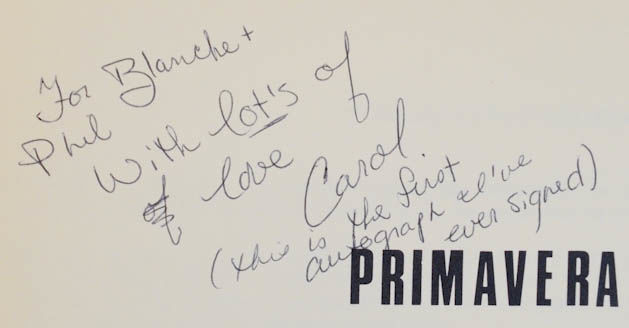 For Blanche +
Phil
With lot's of
love
Carol
(this is the first
autograph I've
ever signed)
PRIMAVERA